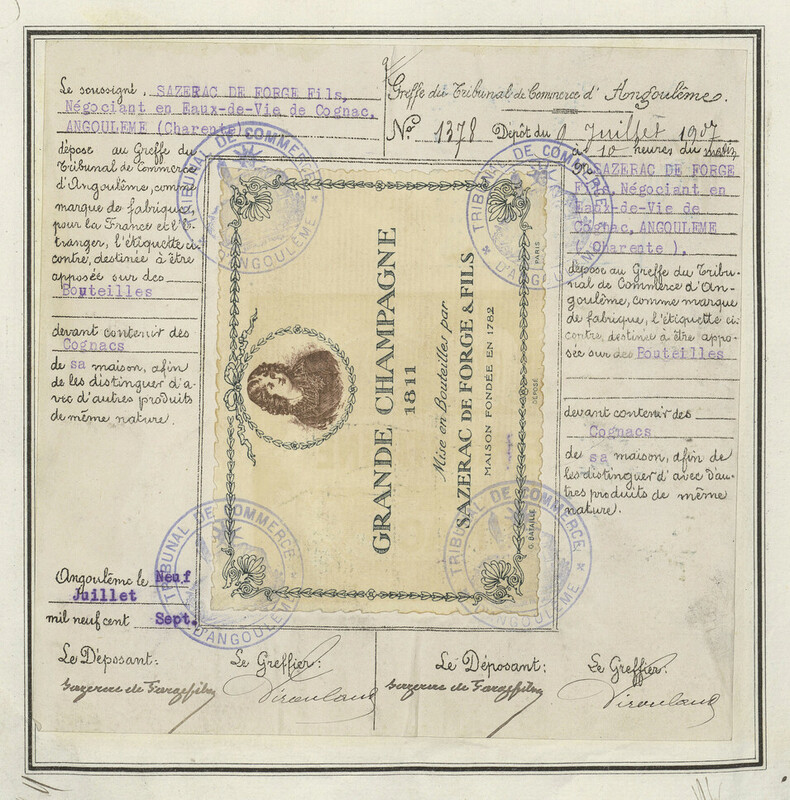 Le soussigné, SAZERAC DE FORGE Fils,
Négociant en Eaux-de-Vie de Cognac,
ANGOULEME (Charente)
dépose au Greffe du
Tribunal de Commerce
d'Angoulême, comme
marque de fabrique,
pour la France et l'É-
tranger, l'étiquette ci-
contre, destinée à être
apposée sur des
Bouteilles
devant contenir des
Cognacs
de sa maison, afin
de les distinguer d'a-
vec d'autres produits
de même nature.
Angoulême le Neuf
Juillet
mil neuf cent Sept.
Le Déposant: Le Greffier:
Sazerac de Forge fils
Greffe du Tribunal de Commerce d'Angoulême.
No. 1378 Dépôt du 9 Juillet 1907
à 10 heures du matin
SAZERAC DE FORGE
Fils, Négociant en
Eaux-de-Vie de
Cognac, ANGOULEME
(Charente),
dépose au Greffe du Tribu-
nal de Commerce d'An-
goulême, comme marque
de fabrique, l'étiquette ci-
contre, destinée à être appo-
sée sur des Bouteilles
devant contenir des
Cognacs
de sa maison, afin de
les distinguer d'avec d'au-
tres produits de même
nature.
Le Déposant: Le Greffier:
Sazerac de Forge fils
GRANDE CHAMPAGNE
1811
Mise en Bouteilles par
SAZERAC DE FORGE & FILS
MAISON FONDÉE EN 1782
G. BATAILLE DÉPOSÉ PARIS
TRIBUNAL DE COMMERCE D'ANGOULEME
TRIBUNAL DE COMMERCE D'ANGOULEME
TRIBUNAL DE COMMERCE D'ANGOULEME
TRIBUNAL DE COMMERCE D'ANGOULEME